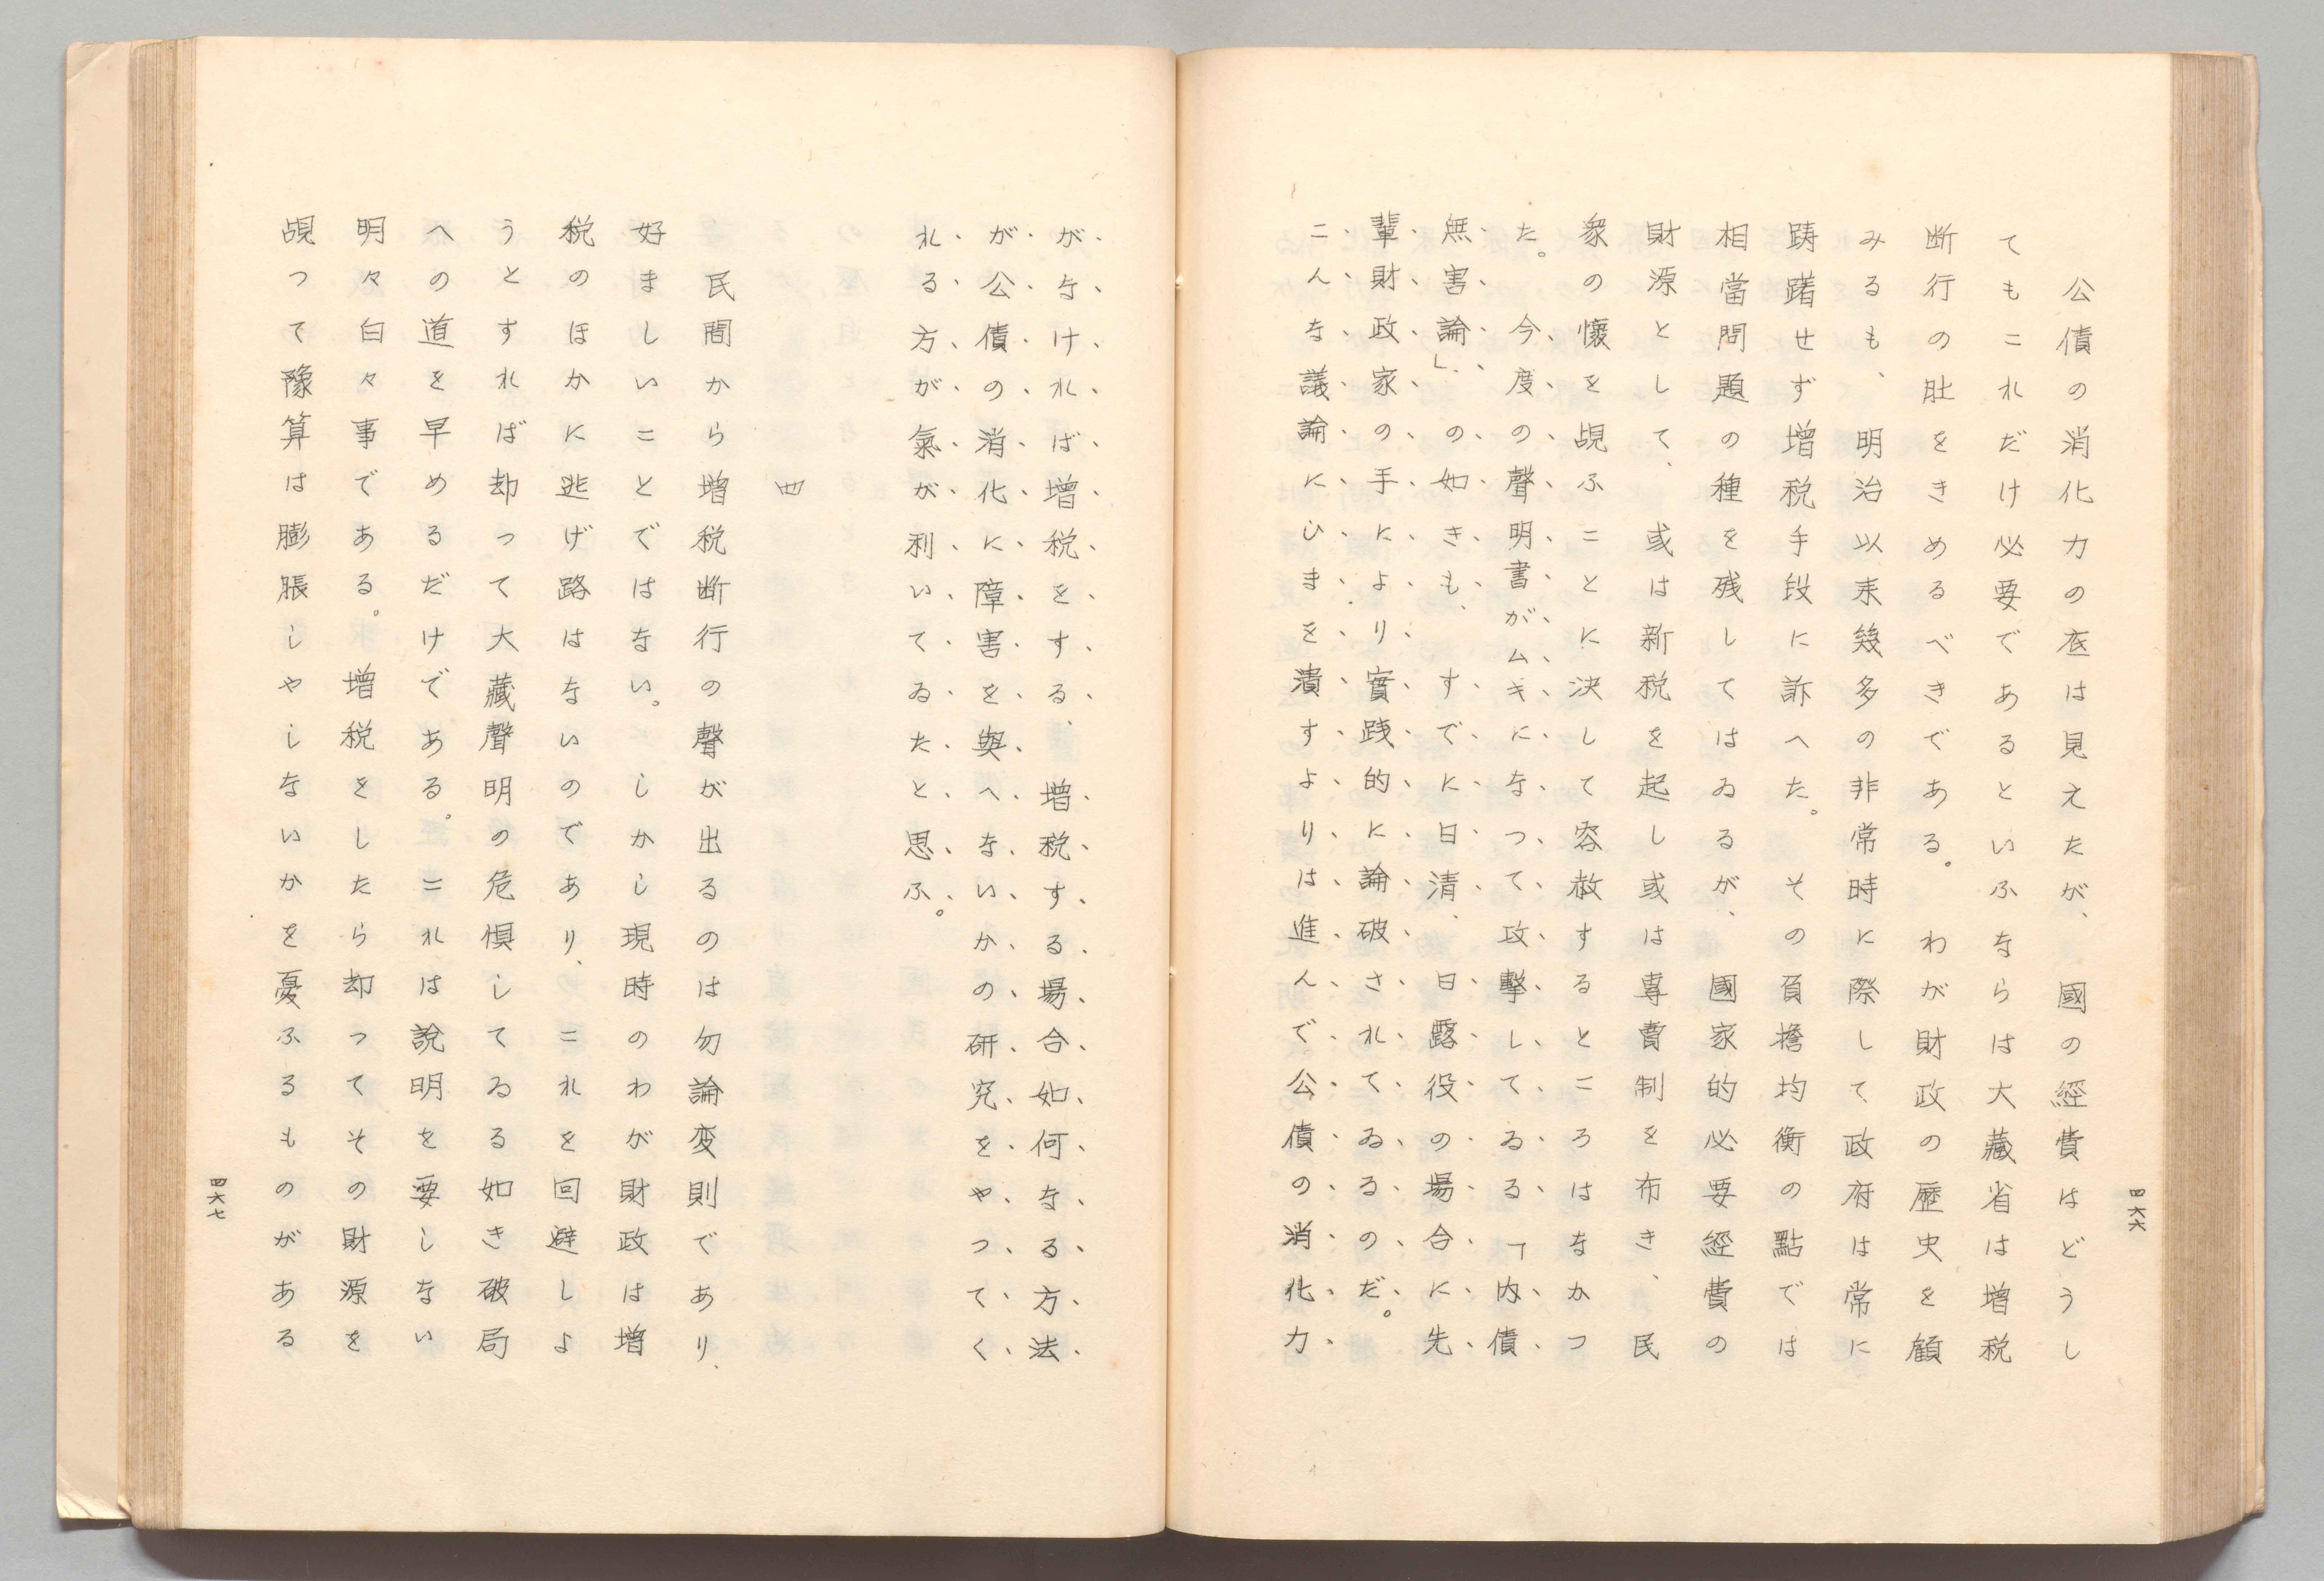 公債の消化力の底は見えたが、國の經費はどうし
てもこれだけ必要であるといふならは大藏省は増税
断行の肚をきめるべきである。わが財政の歴史を顧
みるも、明治以来幾多の非常時に際して政府は常に
躊躇せず増税手段に訴へた。その負擔均衡の點では
相當問題の種を残してはゐるが、國家的必要經費の
財源として、或は新税を起し或は専賣制を布き、民
衆の懐を覘ふことに決して容赦するところはなかつ
た。今度の聲明書がムキになつて攻撃してゐる「内債
無害論」の如きも、すでに日清、日露役の場合に先
輩財政家の手により實践的に論破されてゐるのだ。
こんな議論にひまを潰すよりは進んで公債の消化力
四六六
がなければ増税をする、増税する場合如何なる方法
が公債の消化に障害を與へないかの研究をやつてく
れる方が氣が利いてゐたと思ふ。
四
民間から増税断行の聲が出るのは勿論変則であり、
好ましいことではない。しかし現時のわが財政は増
税のほかに逃げ路はないのであり、これを回避しよ
うとすれば却つて大藏聲明の危惧してゐる如き破局
への道を早めるだけである。これは説明を要しない
明々白々事である。増税をしたら却つてその財源を
覘つて豫算は膨脹しやしないかを憂ふるものがある
四六七